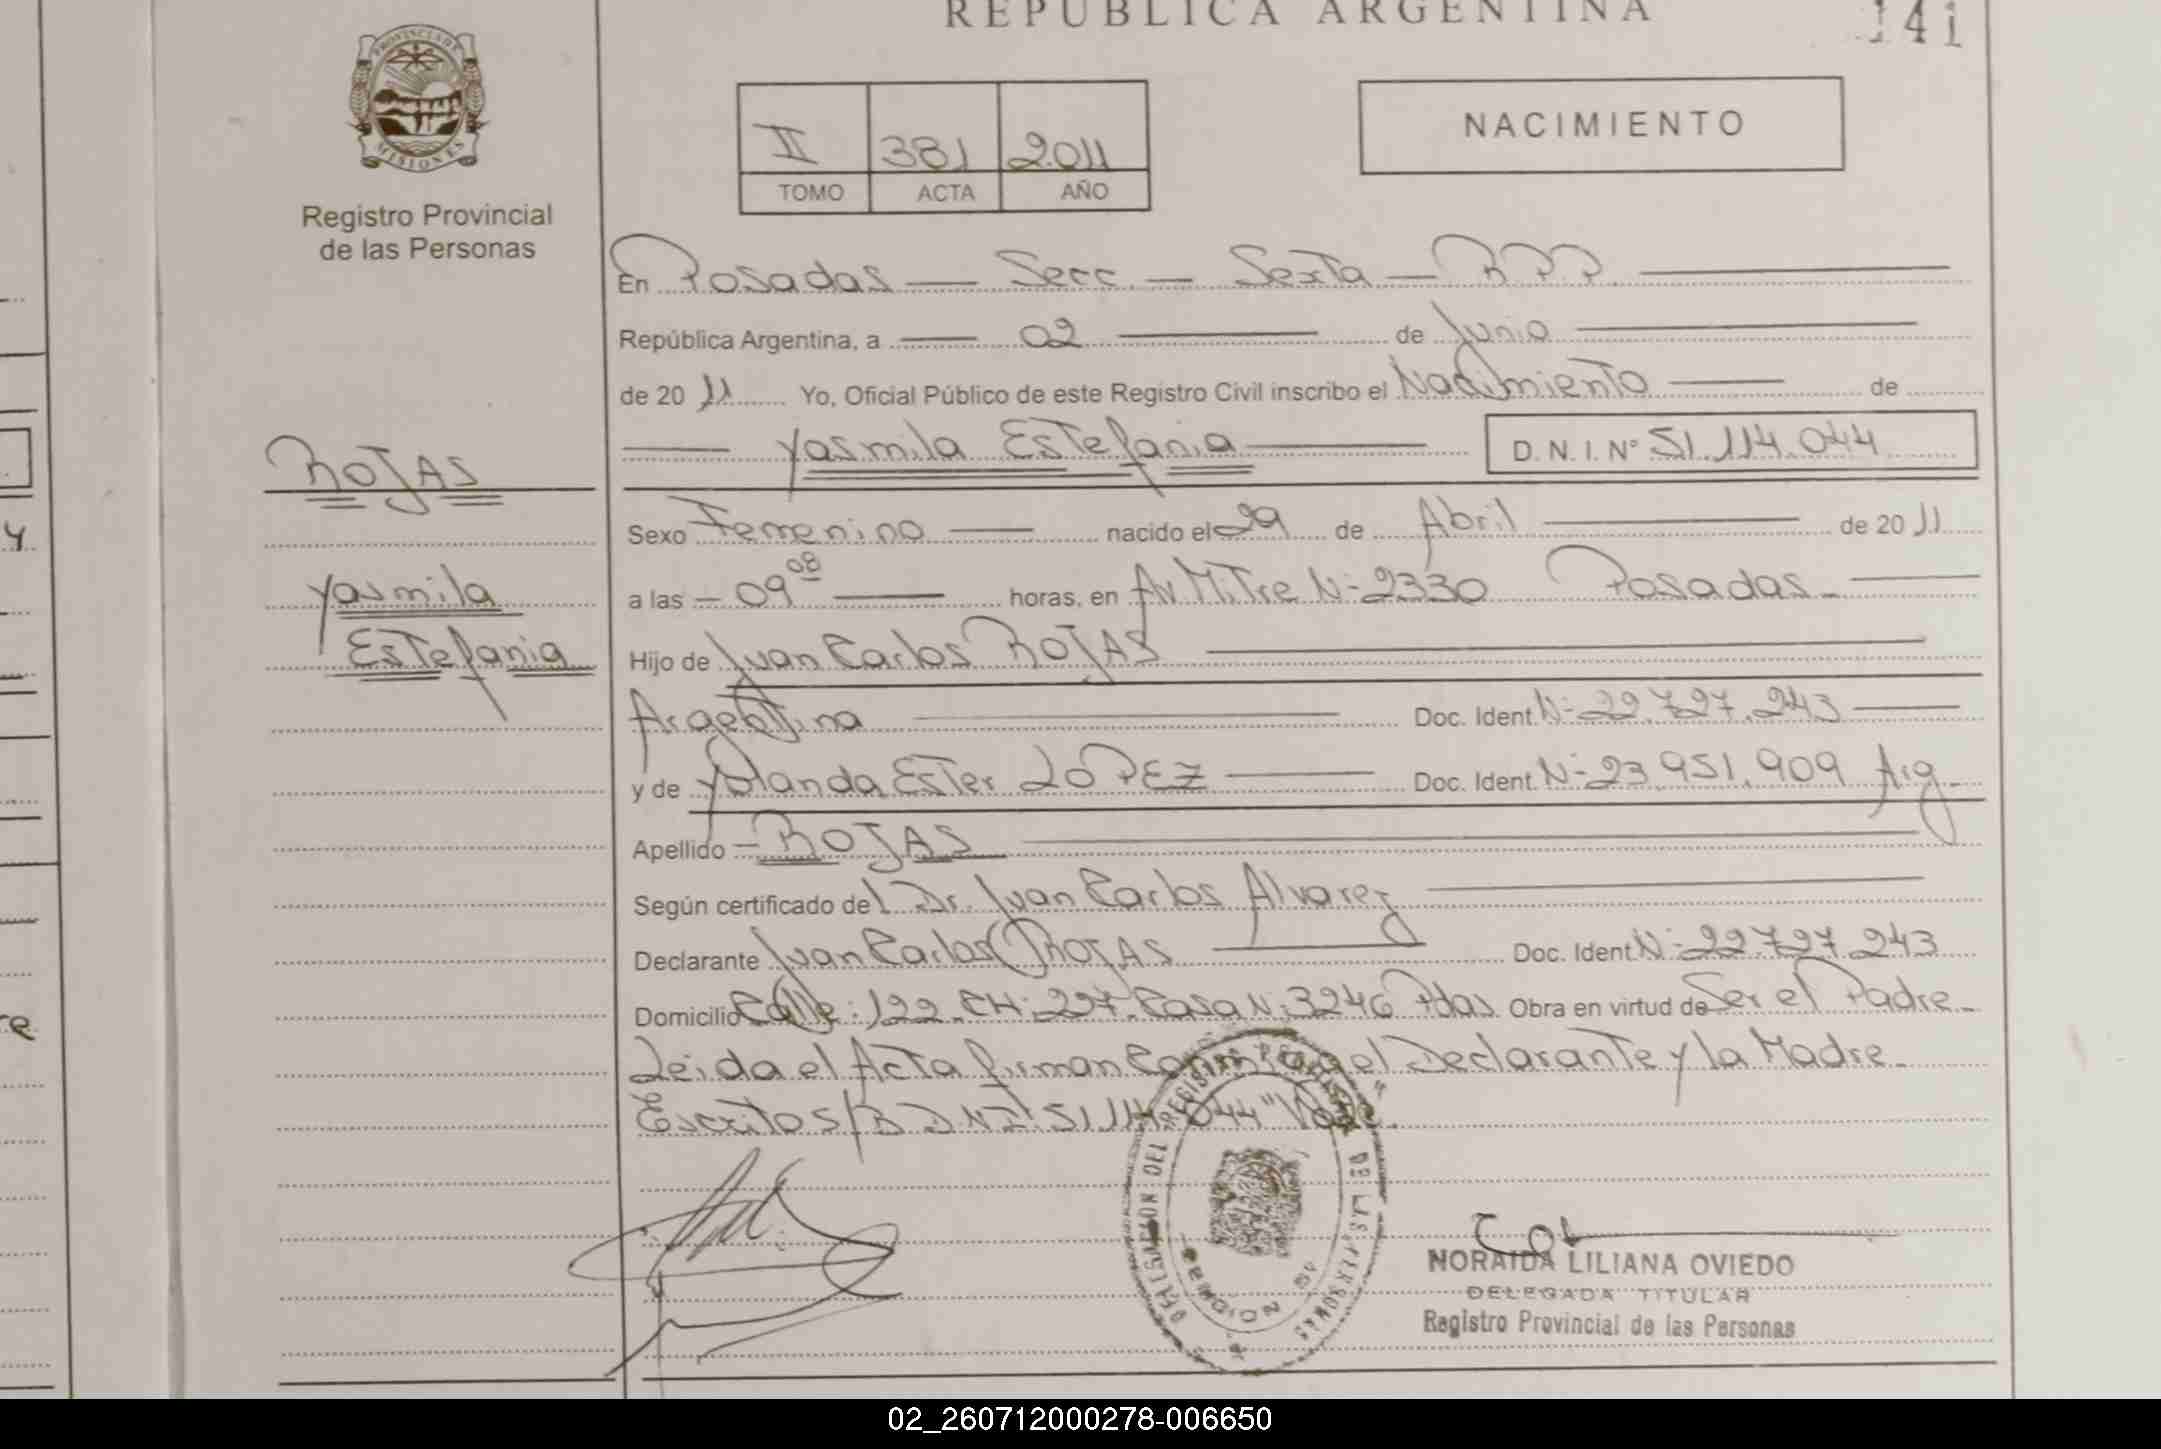 REPUBLICA ARGENTINA
141
PROVINCIA DE
MISIONES
Registro Provincial
de las Personas
II 381 2.011
TOMO ACTA AÑO
NACIMIENTO
En Posadas — Secc — Sexta — R.P.P.
República Argentina, a — 02 — de Junio
de 20 11 Yo, Oficial Público de este Registro Civil inscribo el Nacimiento — de
— Yasmila Estefania — D.N.I. Nº 51.114.044
ROJAS
Yasmila
Estefania
Sexo Femenino — nacido el 29 de Abril — de 20 11
a las — 09 08 — horas, en Av Mitre N- 2330 Posadas —
Hijo de Juan Carlos ROJAS
Argentina — Doc. Ident. N- 22.727.243 —
y de Yolanda Ester LOPEZ — Doc. Ident. N- 23.951.909 Arg.
Apellido — ROJAS
Según certificado del Dr. Juan Carlos Alvarez
Declarante Juan Carlos ROJAS Doc. Ident. N- 22.727.243
Domicilio Calle: 122 CH: 227 Casa N: 3246 Pdas. Obra en virtud de Ser el Padre —
Leida el Acta firman Conmigo el Declarante y la Madre —
Escritos/B D N I 51.114.044 "Vale.
DELEGACION DEL REGISTRO PROVINCIAL DE LAS PERSONAS
NORAIDA LILIANA OVIEDO
DELEGADA TITULAR
Registro Provincial de las Personas
02_260712000278-006650